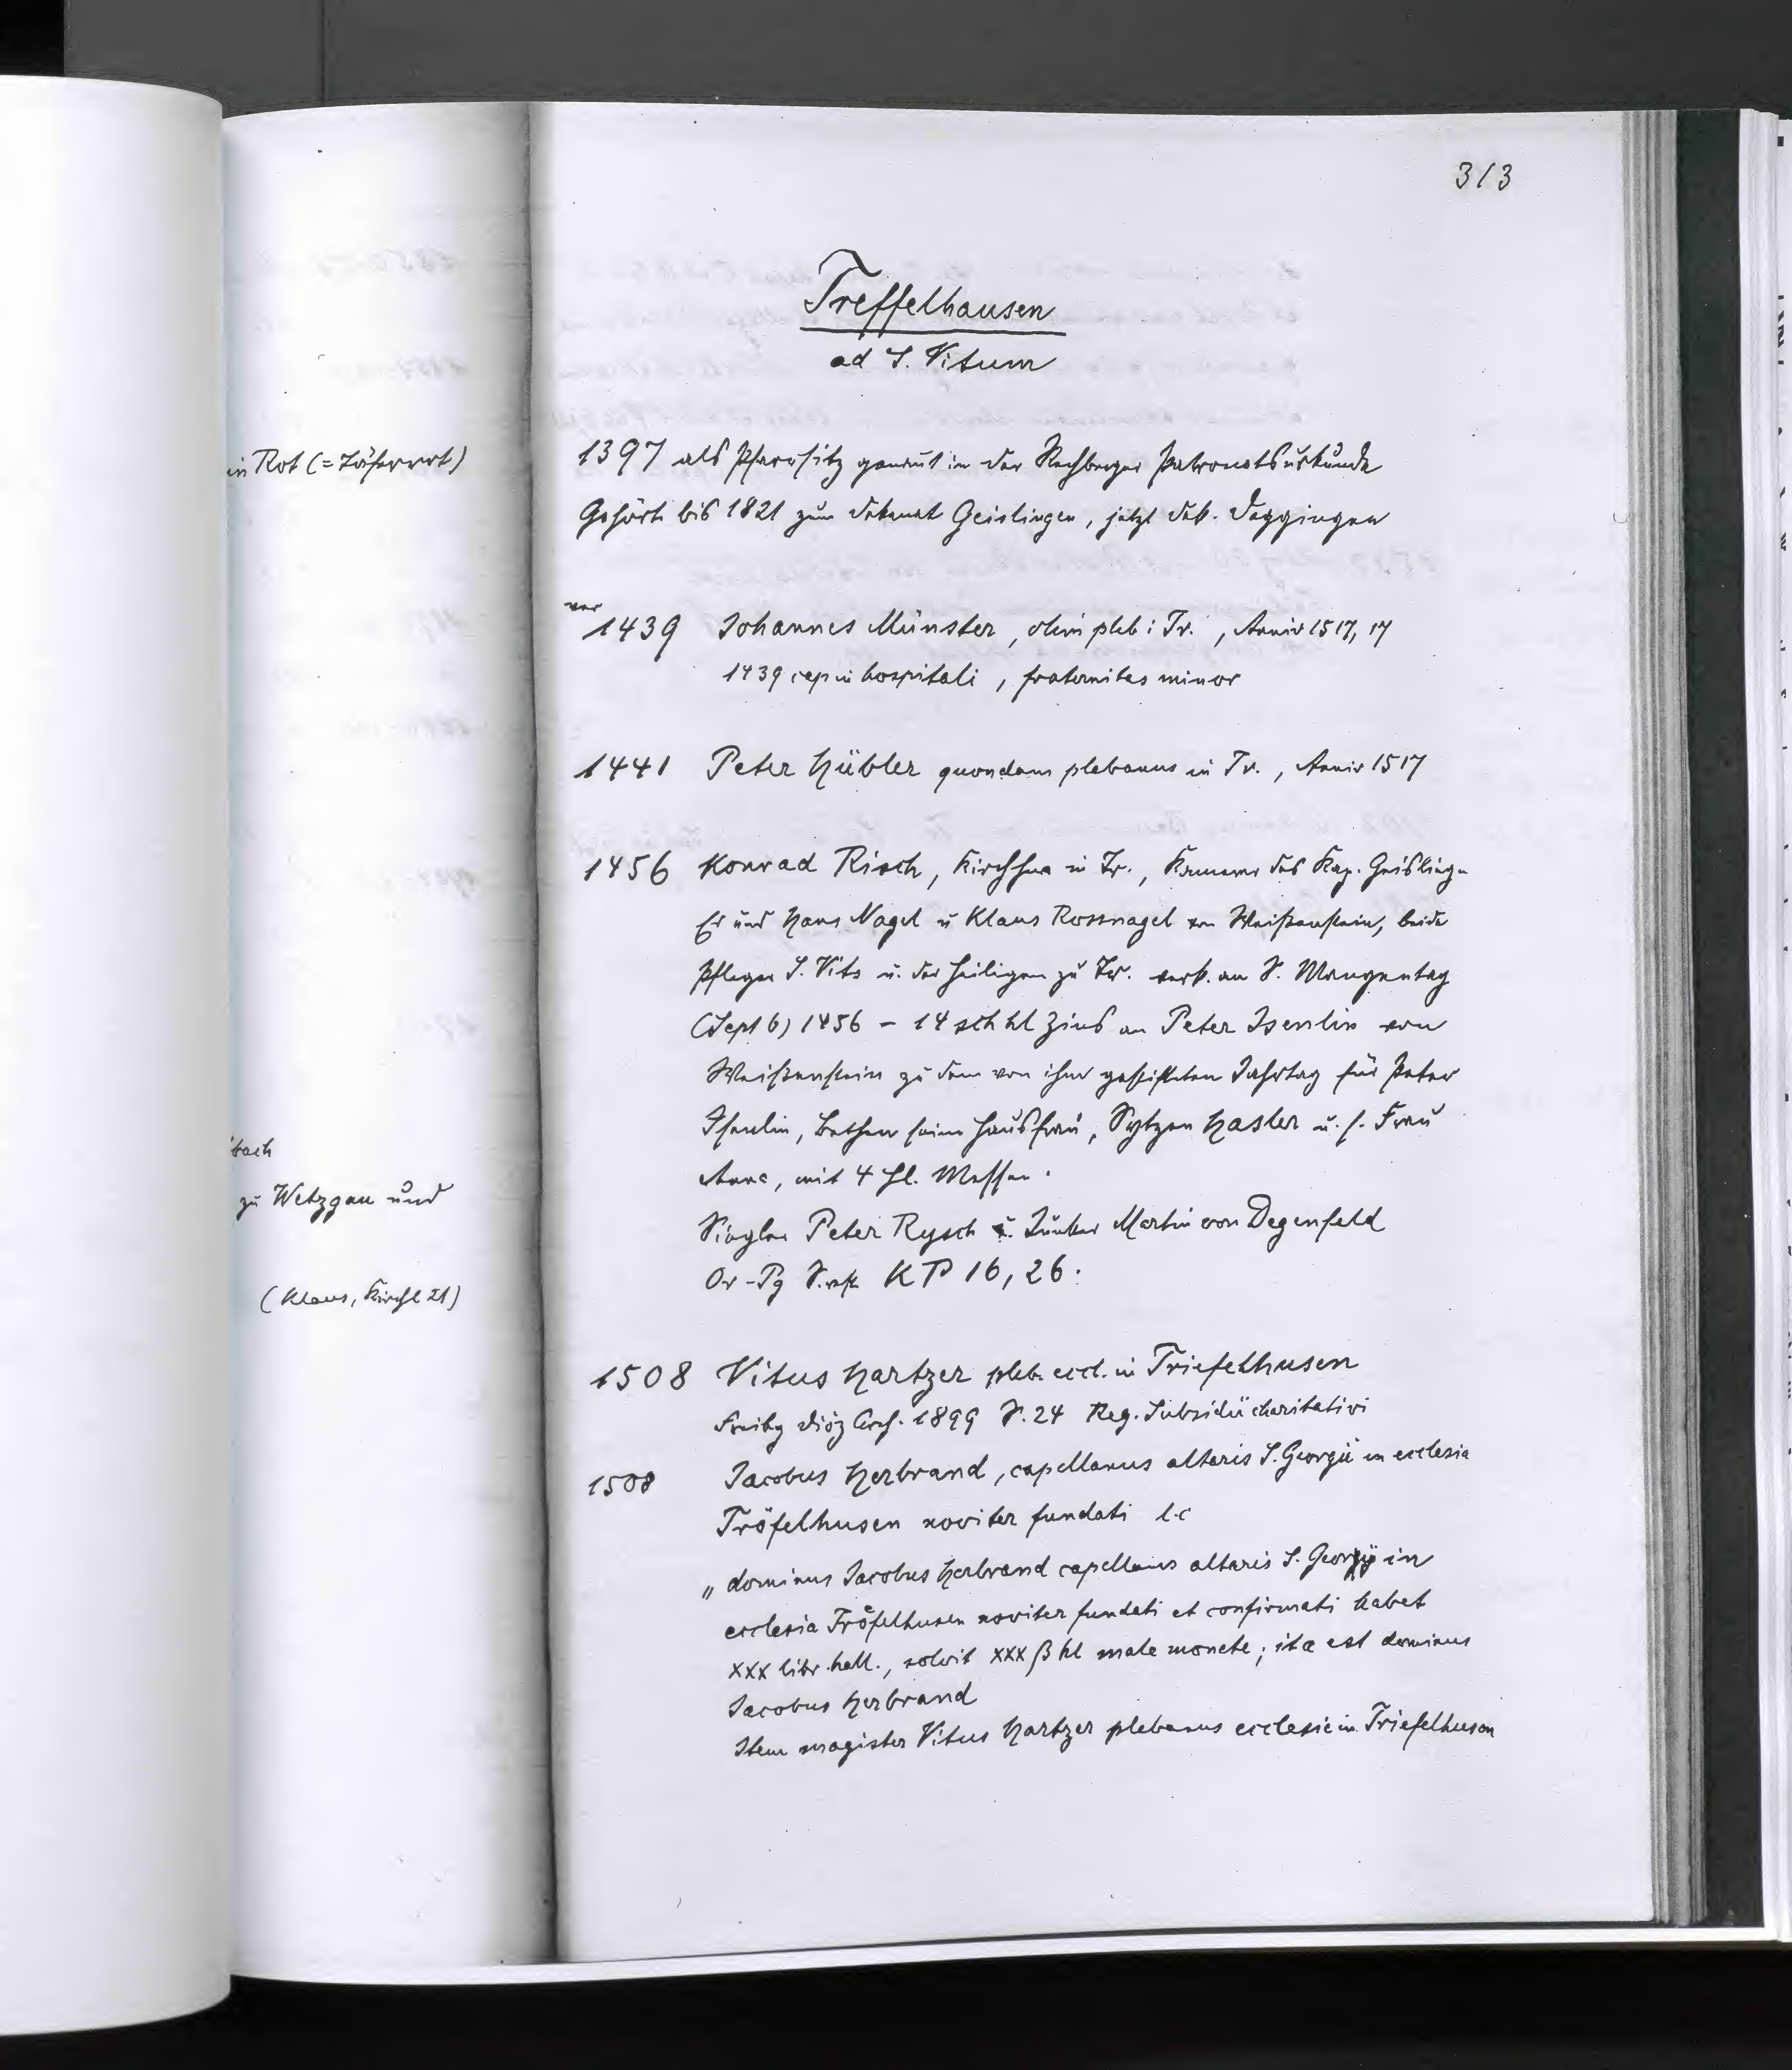 313
Treffelhausen
ad S. Vitum
in Rot (= Täferrot)
1397 als Pfarrsitz genannt in der Rechberger Patronatsurkunde
Gehört bis 1821 zum Dekanat Geislingen, jetzt Dek. Deggingen
vor 1439 Johannes Münster, olim pleb i Tr., Anniv 1517, 17
1439 cap in hospitali, fraternitas minor
1441 Peter Hübler quondam plebanus in Tr., Anniv 1517
1456 Konrad Risch, Kirchherr in Tr., Kammerer des Kap. Geisling-
Er und Hans Nagel u Klaus Rossnagel von Weißenstein, beide
Pfleger S. Vits u. der Heiligen zu Tr. verk. an S. Mangentag
(Sept 6) 1456 - 14 sch hl Zins an Peter Isenlin von
Weißenstein zu dem von ihm gestifteten Jahrtag für Peter
Isenlin, Bethen seine Hausfrau, Sytzen Hasler u. s. Frau
Anna, mit 4 hl. Messen.
Siegler Peter Rysch u. Junker Martin von Degenfeld
Or-Pg KP 16, 26.
bach
zu Wetzgau und
(Klaus, Kirchl 21)
1508 Vitus Hartzer pleb. eccl. in Triefelhusen
Freibg Diöz Arch. 1899 S. 24 Reg. Subsidii charitativi
1508 Jacobus Herbrand, capellanus altaris S. Georgii in ecclesia
Tröfelhusen noviter fundati l.c
„dominus Jacobus Herbrand capellanus altaris S. Georgii in
ecclesia Tröfelhusen noviter fundati et confirmati habet
XXX libr. hall., solvit XXX ß hl male monete; ita est dominus
Jacobus Herbrand
Item magister Vitus Hartzer plebanus ecclesie in Triefelhusen